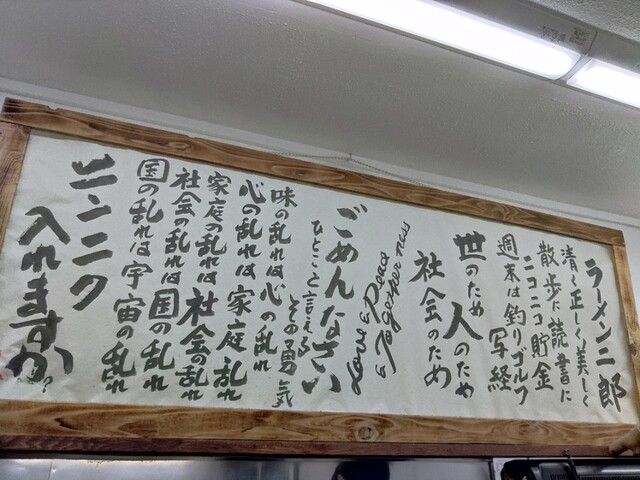 ラーメン二郎
清く正しく美しく
散歩に読書に
ニコニコ貯金
週末は釣りゴルフ
写経
世のため人のため
社会のため
Love & Peace
& Togetherness
ごめんなさい
ひとこと言える
その勇気
味の乱れは心の乱れ
心の乱れは家庭の乱れ
家庭の乱れは社会の乱れ
社会の乱れは国の乱れ
国の乱れは宇宙の乱れ
ニンニク
入れますか?